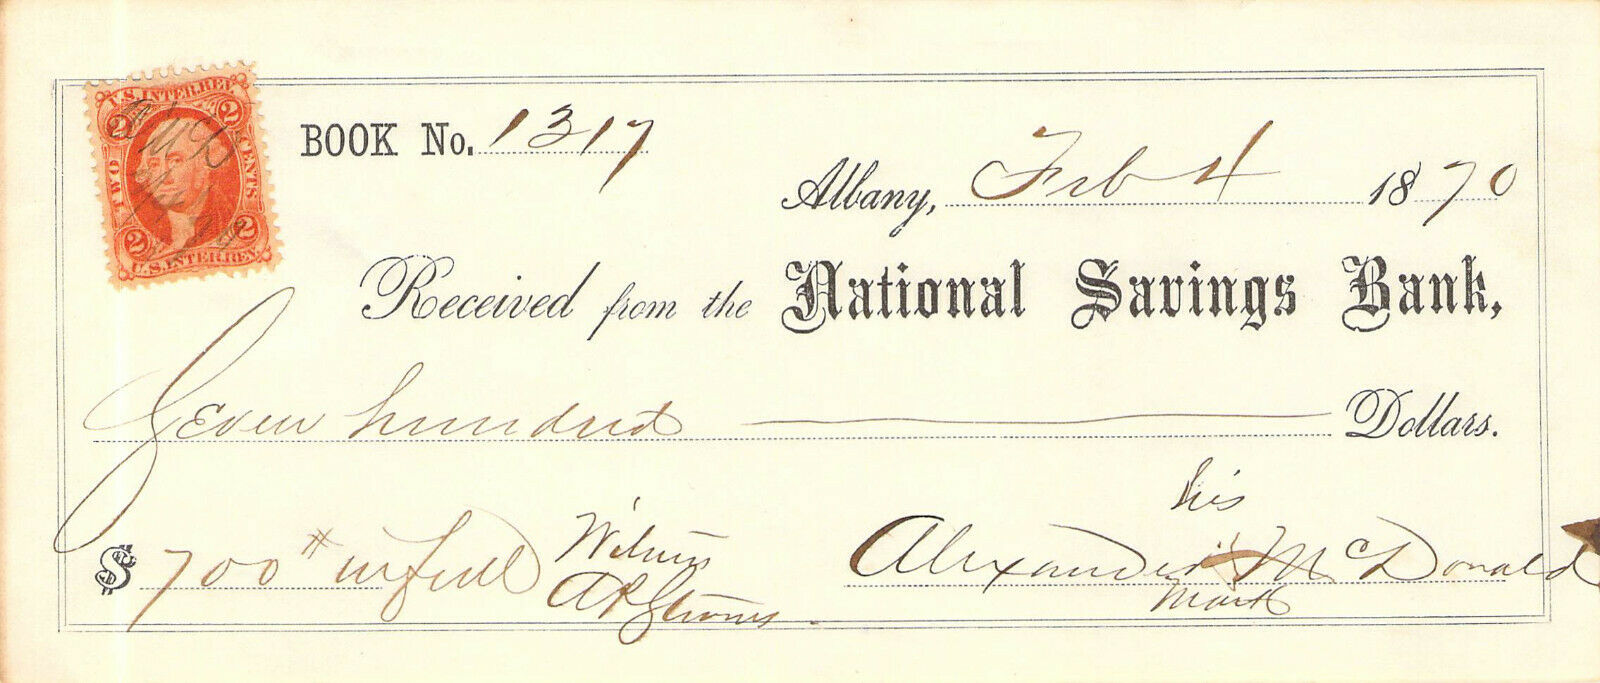 U.S. INTER. REV.
2 2
TWO CENTS
2 2
U.S. INTER. REV.
BOOK No. 1317
Albany, Feb 4 1870
Received from the National Savings Bank,
Seven hundred Dollars.
his
$ 700 # in full Witness Alexander X McDonald
mark